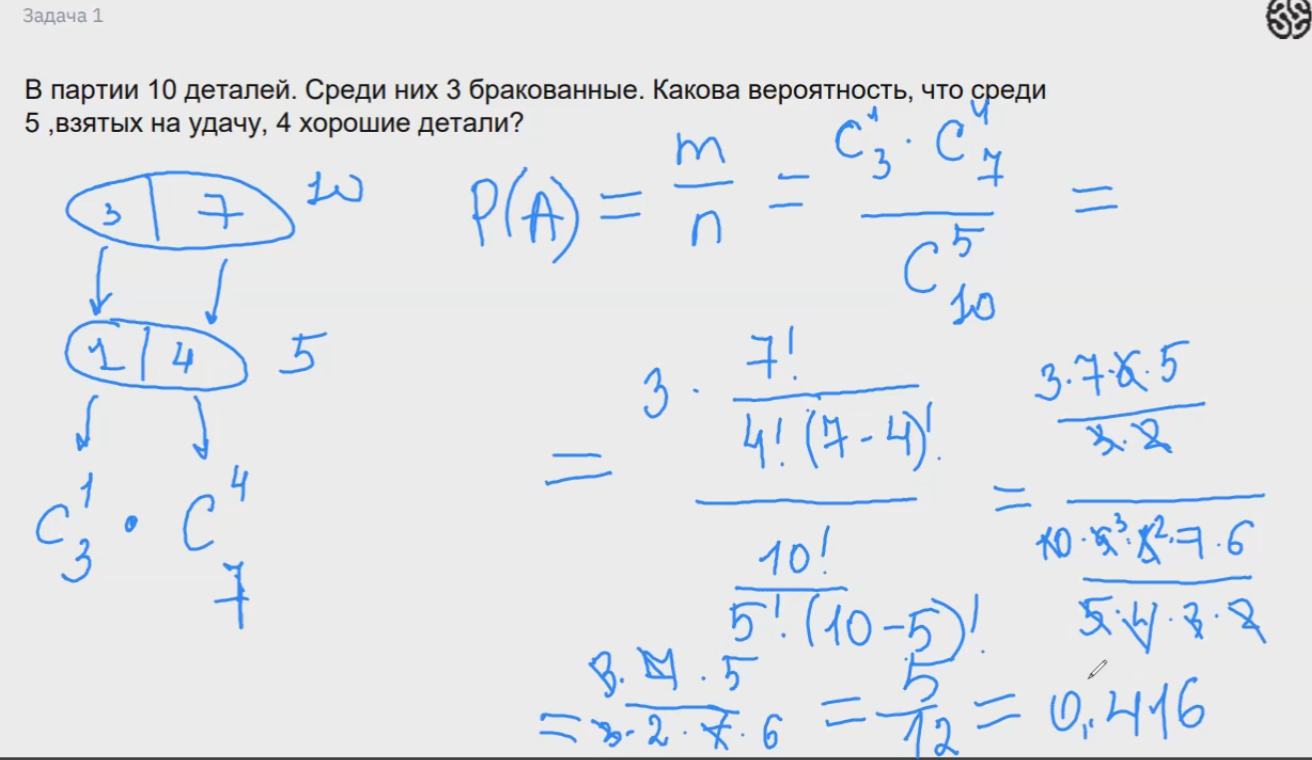 Задача 1
В партии 10 деталей. Среди них 3 бракованные. Какова вероятность, что среди
5 ,взятых на удачу, 4 хорошие детали?
3 | 7 10
1 | 4 5
C₃¹ · C₇⁴
P(A) = m/n = (C₃¹ · C₇⁴)/C₁₀⁵ =
= (3 · 7!/(4! · (7-4)!))/(10!/(5! · (10-5)!)) = (3·7·6·5/(3·2))/(10·9³·8²·7·6/(5·4·3·2))
= (3·7·5)/(3·2·7·6) = 5/12 = 0,416